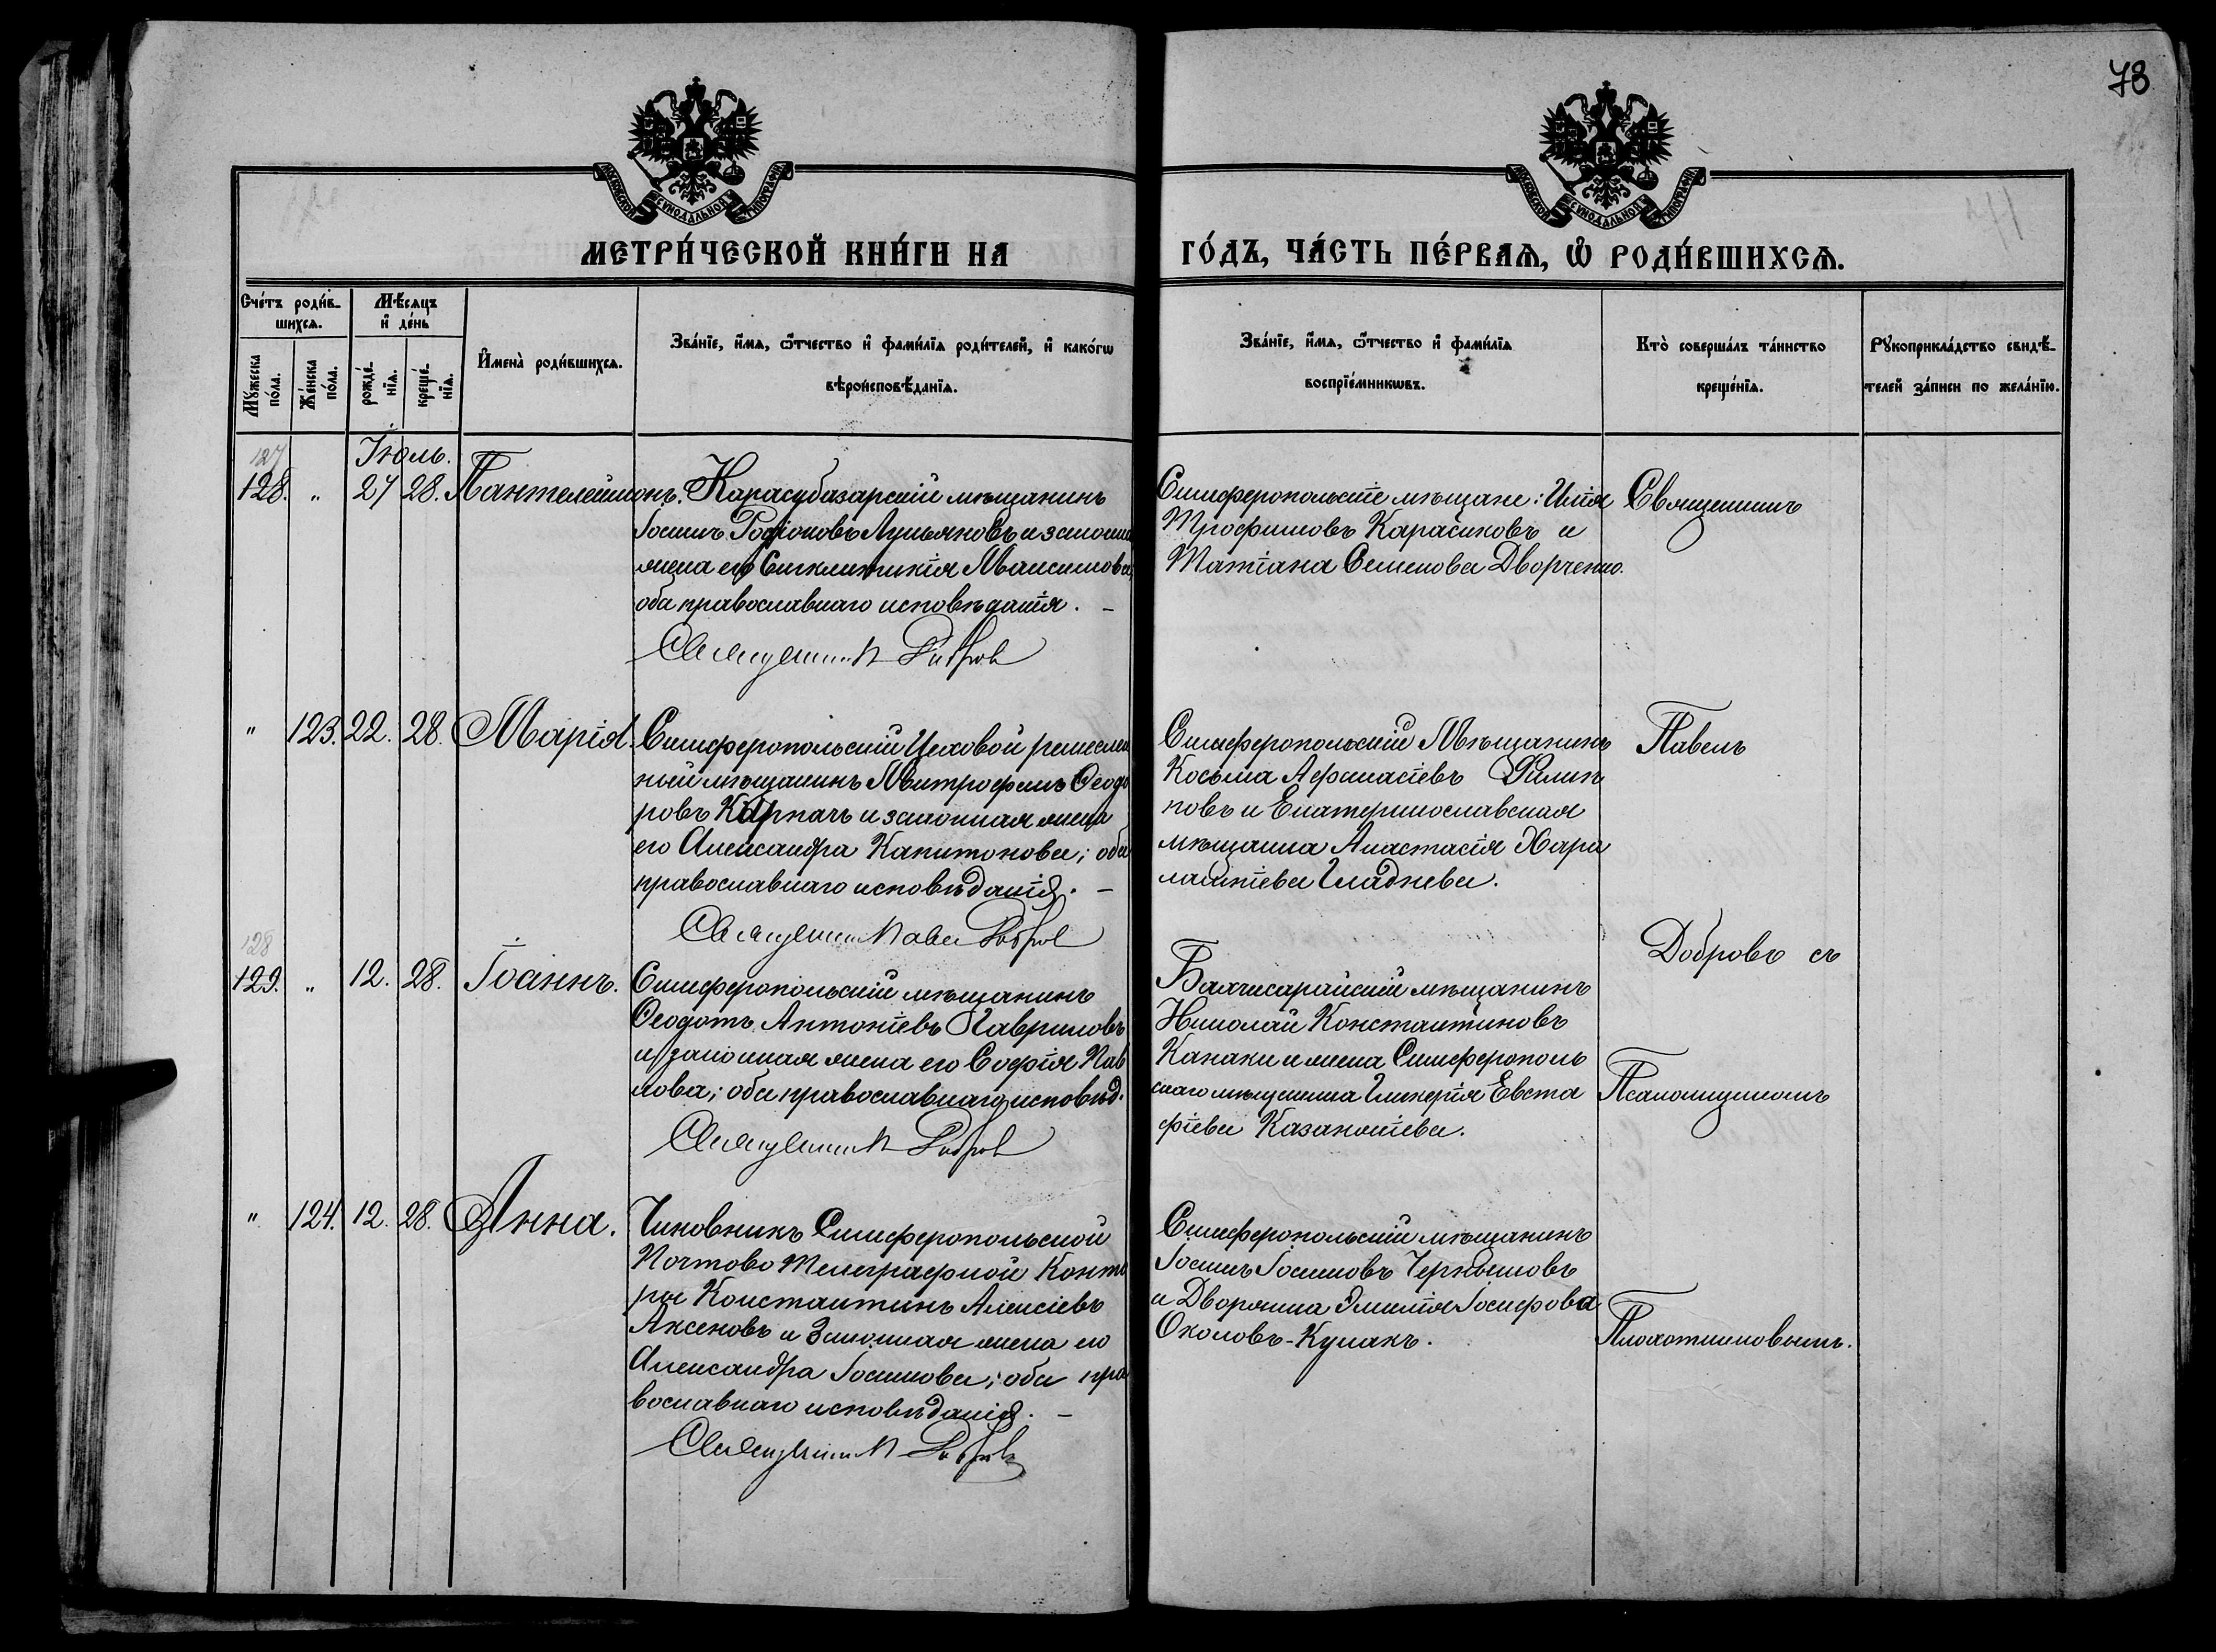 78
МОСКОВСКОЙ СУНОДАЛЬНОЙ ТИПОГРАФІИ
МОСКОВСКОЙ СУНОДАЛЬНОЙ ТИПОГРАФІИ
МЕТРИ́ЧЕСКОЙ КНИ́ГИ НА
ГО́ДЪ, ЧА́СТЬ ПЕ́РВАѦ, Ѡ҆ РОДИ́ВШИХСѦ.
Сче́тъ роди́в-
шихсѧ.
Мꙋ́жеска
по́ла.
Же́нска
по́ла.
Мѣ́сѧцъ
и҆ де́нь
рожде́-
нїѧ.
креще́-
нїѧ.
И҆мена̀ роди́вшихсѧ.
Зва́нїе, и҆́мѧ, ѻ҆́тчество и҆ фами́лїѧ роди́телей, и҆ како́гѡ
вѣроисповѣ́данїѧ.
Зва́нїе, и҆́мѧ, ѻ҆́тчество и҆ фами́лїѧ
воспрїе́мникѡвъ.
Кто̀ соверша́лъ та́инство
креще́нїѧ.
Рꙋкоприкла́дство свидѣ́-
телей за́писи по жела́нїю.
Іюль.
127
128. " 27 28. Пантелеймонъ.
Карасубазарскій мѣщанинъ
Іоаннъ Родіоновъ Лукьяновъ и законная
жена его Синклитикія Максимова,
оба православнаго исповѣданія. –
Священникъ Добров
Симферопольскіе мѣщане: Илія
Трофимовъ Карасиковъ и
Татіана Семенова Дворченко.
Священникъ
" 123. 22. 28. Марія.
Симферопольскій Цеховой ремеслен
ный мѣщанинъ Митрофанъ Ѳеодо
ровъ Карпачъ и законная жена
его Александра Капитонова; оба
православнаго исповѣданія. –
Священник Павел Добров
Симферопольскій Мѣщанинъ
Косьма Аѳанасіевъ Филип
повъ и Екатеринославская
мѣщанка Анастасія Хара
лампіева Гладнева.
Павелъ
128
129. " 12. 28. Іоаннъ.
Симферопольскій мѣщанинъ
Ѳеодотъ Антоніевъ Гавриловъ
и законная жена его Софія Пав
лова; оба православнаго исповѣд.
Священникъ Добров
Бахчисарайскій мѣщанинъ
Николай Константиновъ
Канаки и жена Симферополь
скаго мѣщанина Гликерія Евста
фіева Казаношіева.
Добровъ съ
Псаломщикомъ
" 124. 12. 28. Анна.
Чиновникъ Симферопольской
Почтово Телеграфной Конто
ры Константинъ Алексіевъ
Аксеновъ и Законная жена его
Александра Іоаннова; оба пра
вославнаго исповѣданія. –
Священникъ Добровъ
Симферопольскій мѣщанинъ
Іоаннъ Іоанновъ Чернышовъ
и Дворянка Эмилія Іосифова
Околовъ-Кулакъ.
Плохотниковымъ.